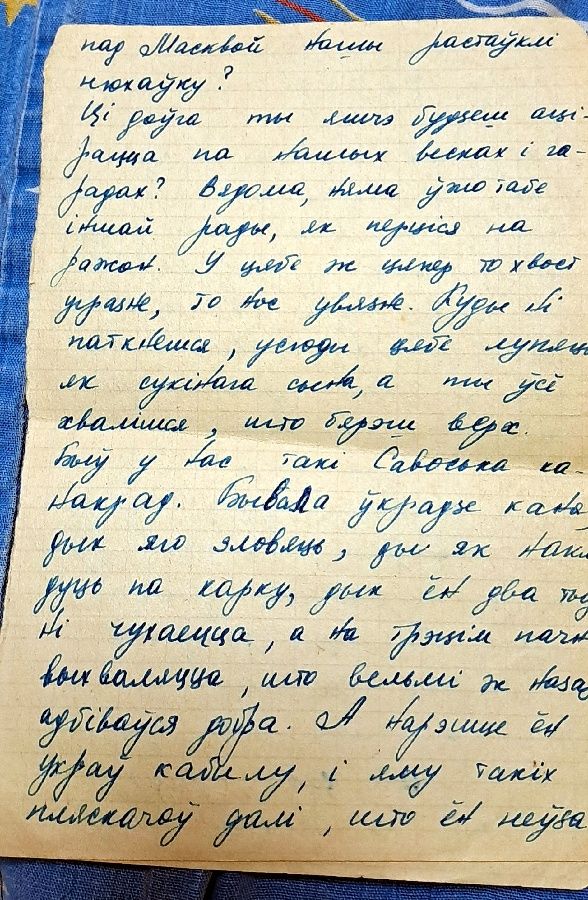 пад Масквой нашы растаўклі
нюхаўку?
Ці доўга ты яшчэ будзеш аці-
рацца па нашых весках і га-
радах? Вядома, няма ўжо табе
іншай рады, як перціся на
ражон. У цябе ж цяпер то хвост
угразне, то нос увязне. Куды ні
паткнешся, усюды цябе лупяць
як сукінага сына, а ты ўсё
хвалішся, што бярэш верх.
Быў у нас такі Савоська ка-
накрад. Бывала ўкрадзе каня
дык яго зловяць, ды як накла
дуць па карку, дык ён два тыд
ні чухаецца, а на трэцім пачне
выхваляцца, што вельмі ж наза
адбіваўся добра. А нарэшце ён
украў кабылу, і яму такіх
пляскачоў далі, што ён неўза